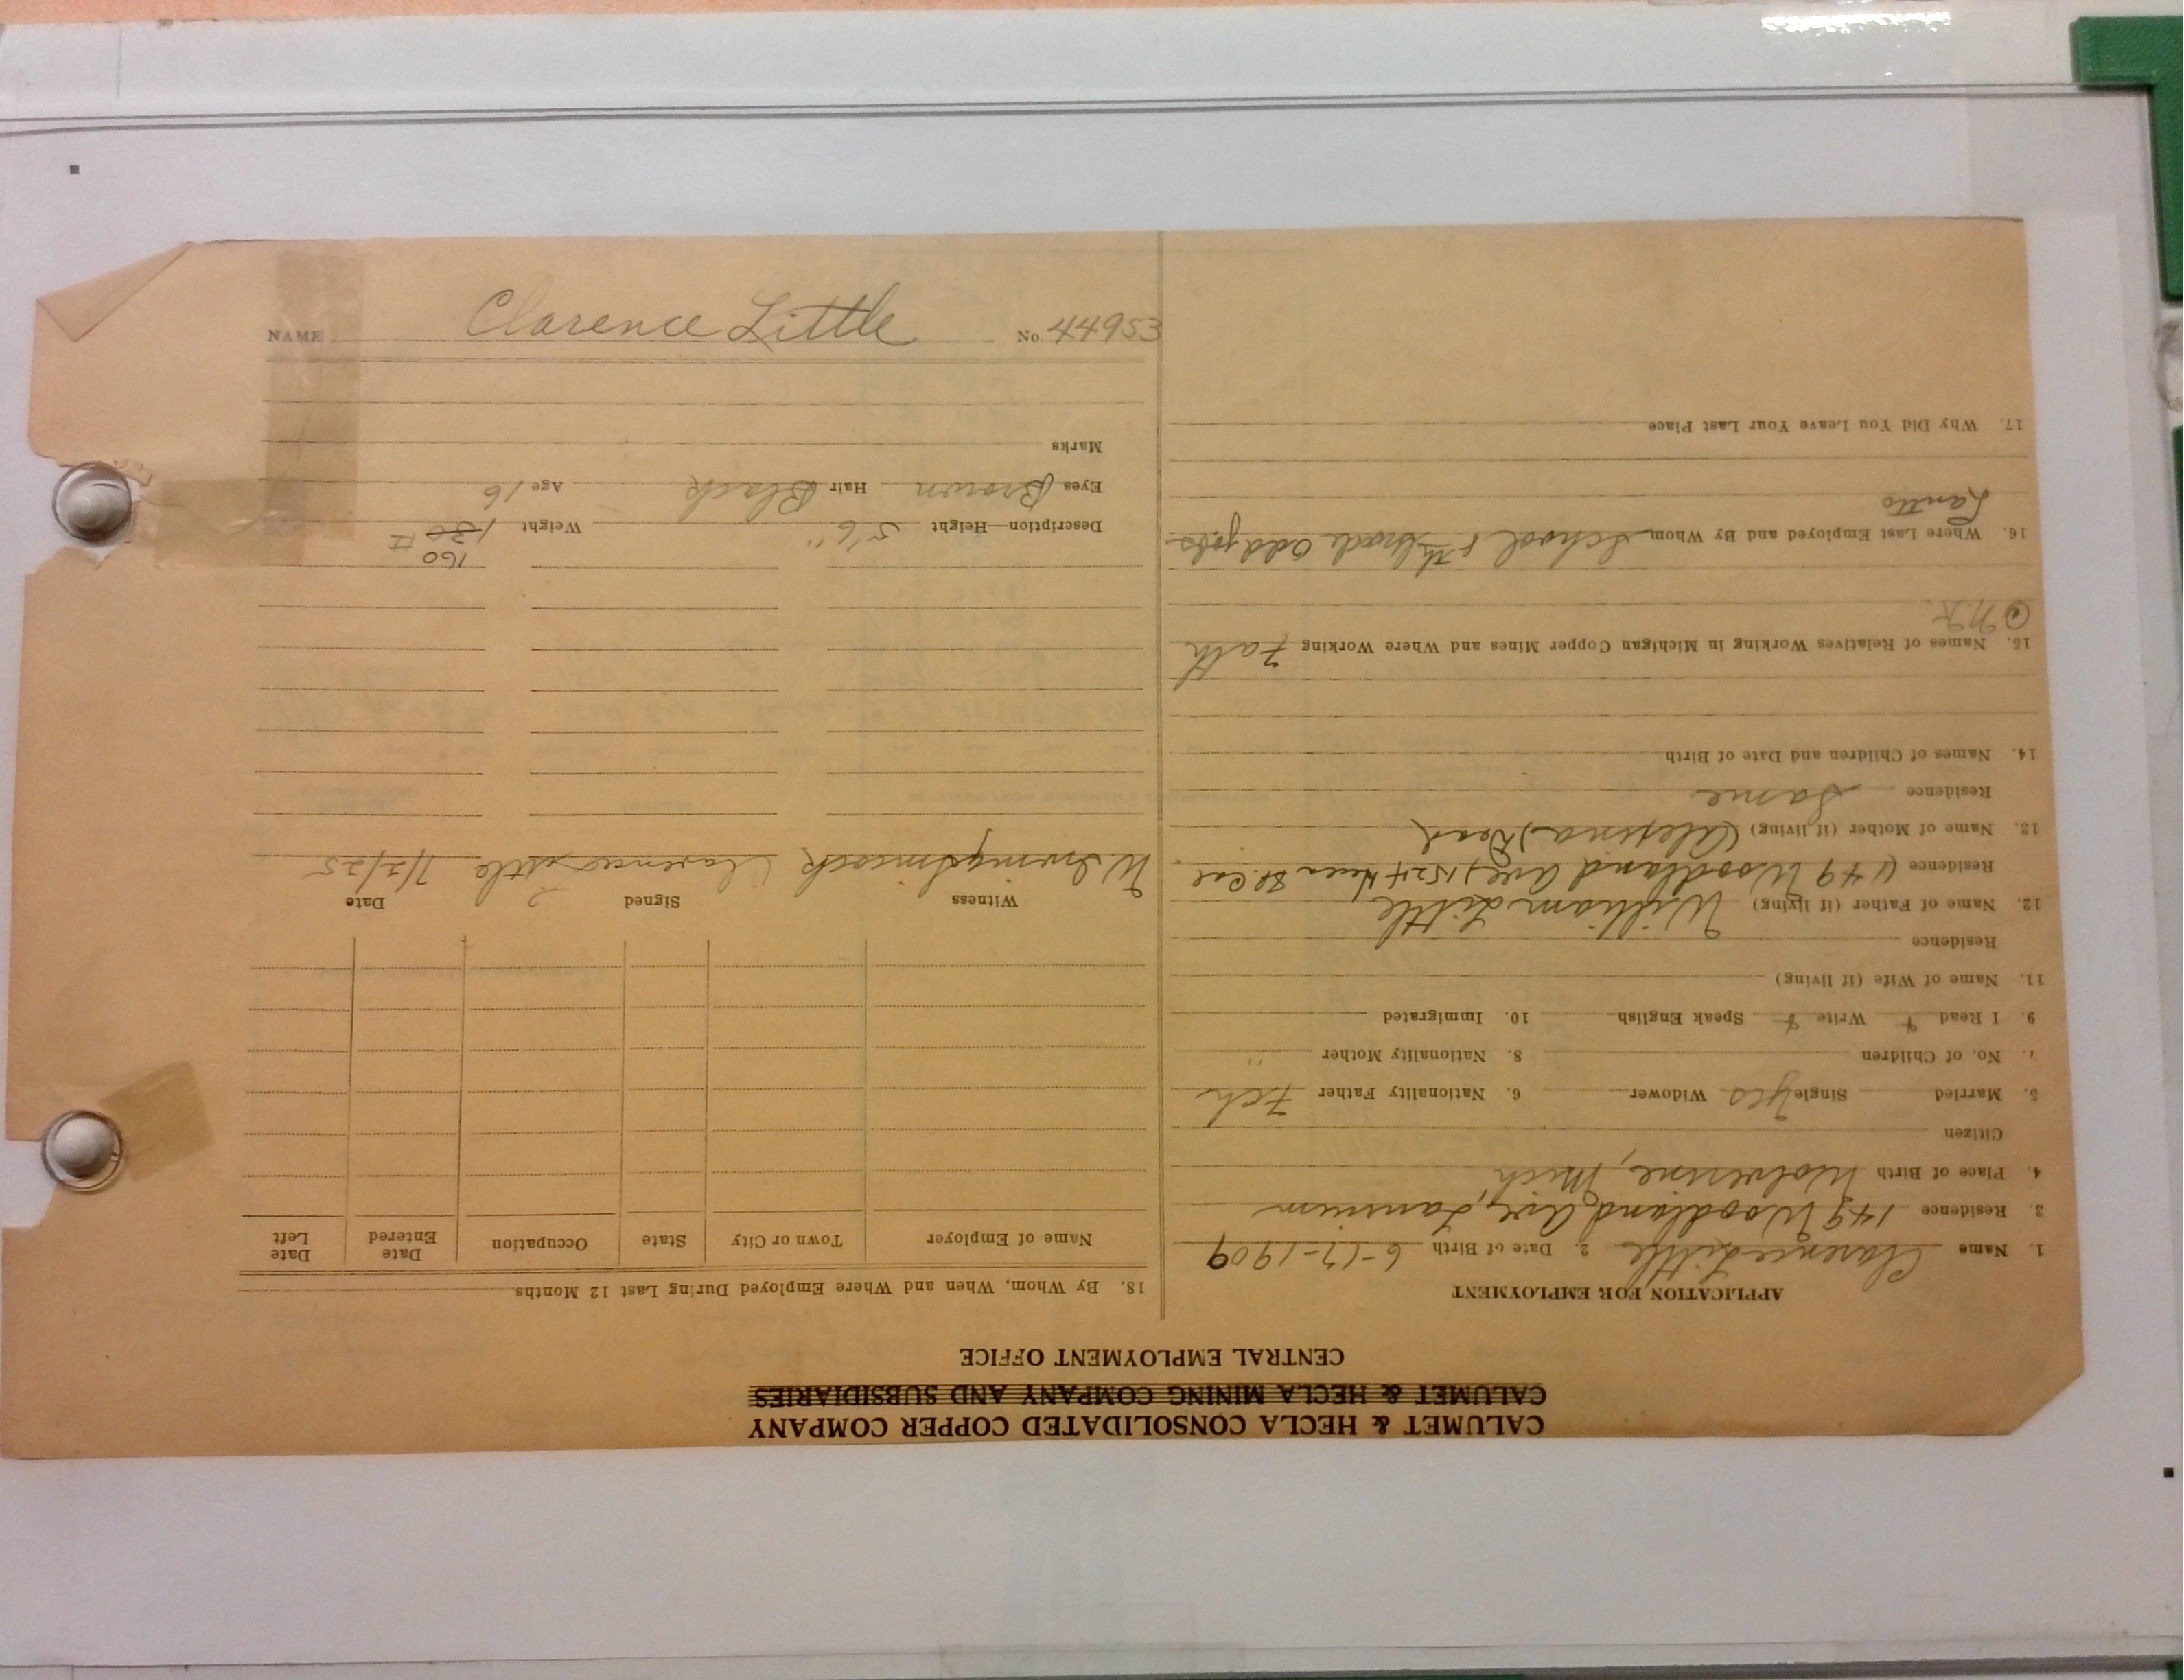 CALUMET & HECLA CONSOLIDATED COPPER COMPANY
CALUMET & HECLA MINING COMPANY AND SUBSIDIARIES
CENTRAL EMPLOYMENT OFFICE
APPLICATION FOR EMPLOYMENT
1. Name Clarence Little 2. Date of Birth 6-17-1909
3. Residence 149 Woodland Ave, Laurium
4. Place of Birth Wolverine, Mich
Citizen
5. Married Single yes Widower 6. Nationality Father Fch
7. No. of Children 8. Nationality Mother "
9. I Read Write Speak English 10. Immigrated
11. Name of Wife (if living)
Residence
12. Name of Father (if living) William Little
Residence (149 Woodland Ave) 1524 St. Cal
13. Name of Mother (if living) Dead
Residence Same
14. Names of Children and Date of Birth
15. Names of Relatives Working in Michigan Copper Mines and Where Working Fath
@ N.K.
16. Where Last Employed and By Whom School 8th Grade odd jobs
17. Why Did You Leave Your Last Place
18. By Whom, When and Where Employed During Last 12 Months
Name of Employer Town or City State Occupation Date Entered Date Left
Witness Signed Date
Clarence Little 7/2/25
160
Description—Height 5'6" Weight 130 #
Eyes Brown Hair Black Age 16
Marks
NAME Clarence Little No. 44953